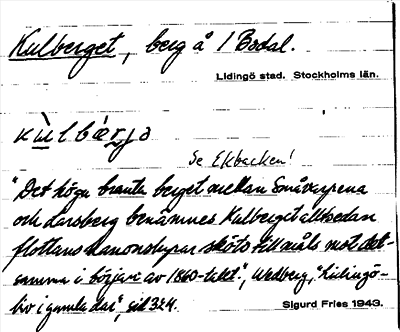 Kulberget, berg å 1 Bodal.
Lidingö stad. Stockholms län.
kùlbárja
Se Ekbacken!
"Det höga branta berget mellan Småvarpena
och Larsberg benämnes Kulberget alltsedan
flottans kanonslupar sköto till måls mot det-
samma i början av 1860-talet.", Wedberg, "Lidingö-
liv i gamla dar", sid 324.
Sigurd Fries 1943.